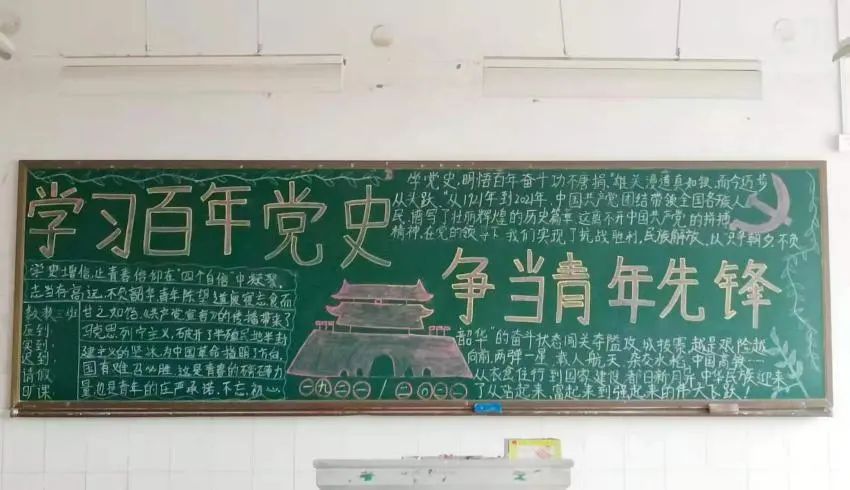 学习百年党史
争当青年先锋
学党史,明悟百年奋斗功不唐捐,"雄关漫道真如铁,而今迈步
从头越",从1921年到2021年,中国共产党团结带领全国各族人
民,谱写了壮丽辉煌的历史篇章,这离不开中国共产党的拼搏
精神,在党的领导下,我们实现了抗战胜利,民族解放,以只争朝夕不负
韶华"的奋斗状态闯关夺隘,攻城拔寨,越是艰险越
向前,两弹一星,载人航天,杂交水稻,中国高铁……
从衣食住行到国家建设,都日新月异,中华民族迎来
了从站起来,富起来到强起来的伟大飞跃!
学史增信,让青春信仰在"四个自信"中凝聚,
志当存高远,不负韶华,青年陈望道废寝忘食而
甘之如饴,《共产党宣言》的传播带来了
马克思列宁主义,破开了半殖民地半封
建主义的坚冰,为中国革命指明了方向,
国有难召必胜,这是青春的磅礴力
量也是青年的庄严承诺,不忘初心
数教三班
应到:
实到:
迟到:
请假:
旷课:
一九二一/二〇二一